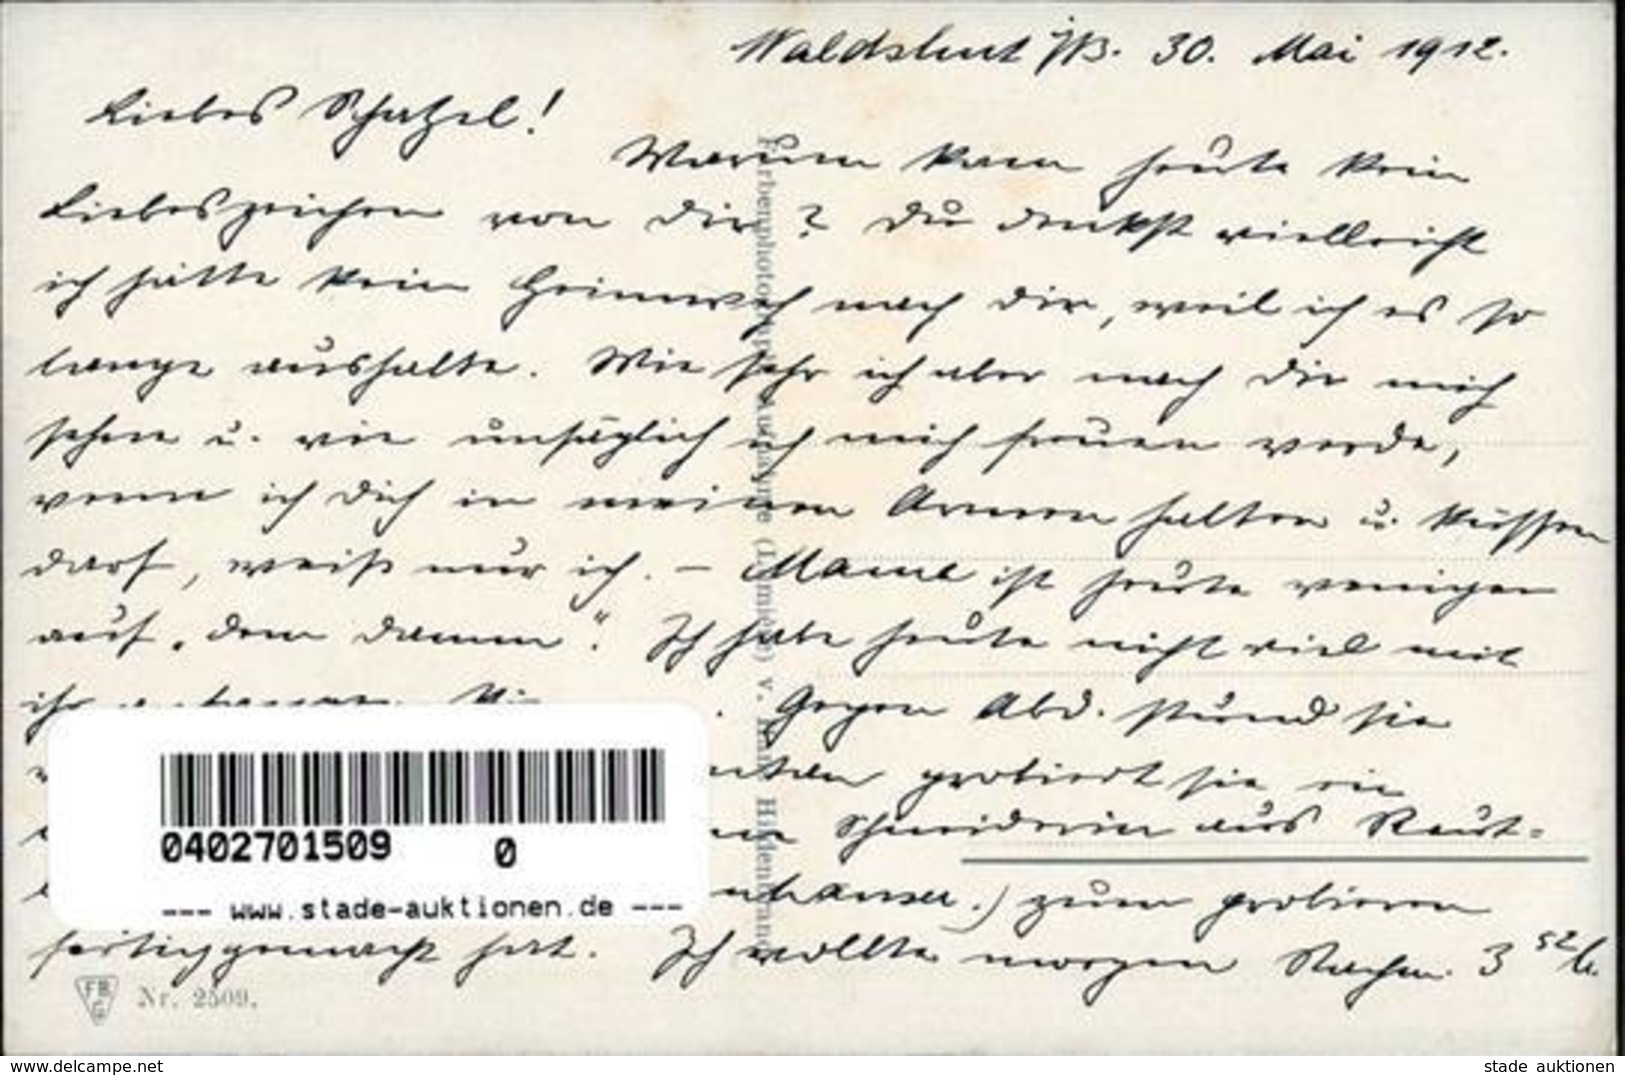 Waldshut i/B. 30. Mai 1912.
Liebes Schatzel!
Warum kam heute kein
Liebeszeichen von Dir? Du denkst vielleicht
ich hätte kein Heimweh nach Dir, weil ich es so
lange aushalte. Wie sehr ich aber nach Dir mich
sehne u. wie unsäglich ich mich freuen werde,
wenn ich Dich in meinen Armen halten u. küssen
darf, weiß nur ich. – Mama ist heute weniger
auf „dem Damm". Ich habe heute nicht viel mit
ihr
. Gegen Abd. stund sie
probiert sie ein
Schneiderin aus
) zum probieren
fertiggemacht hat. Ich wollte morgen Nachm. 3 52
Farbenphotogr. Aufnahme (Lumière) v. Hans Hildenbrand
FBG
Nr. 2509.
0402701509 0
--- www.stade-auktionen.de ---
www.delcampe.net
stade auktionen